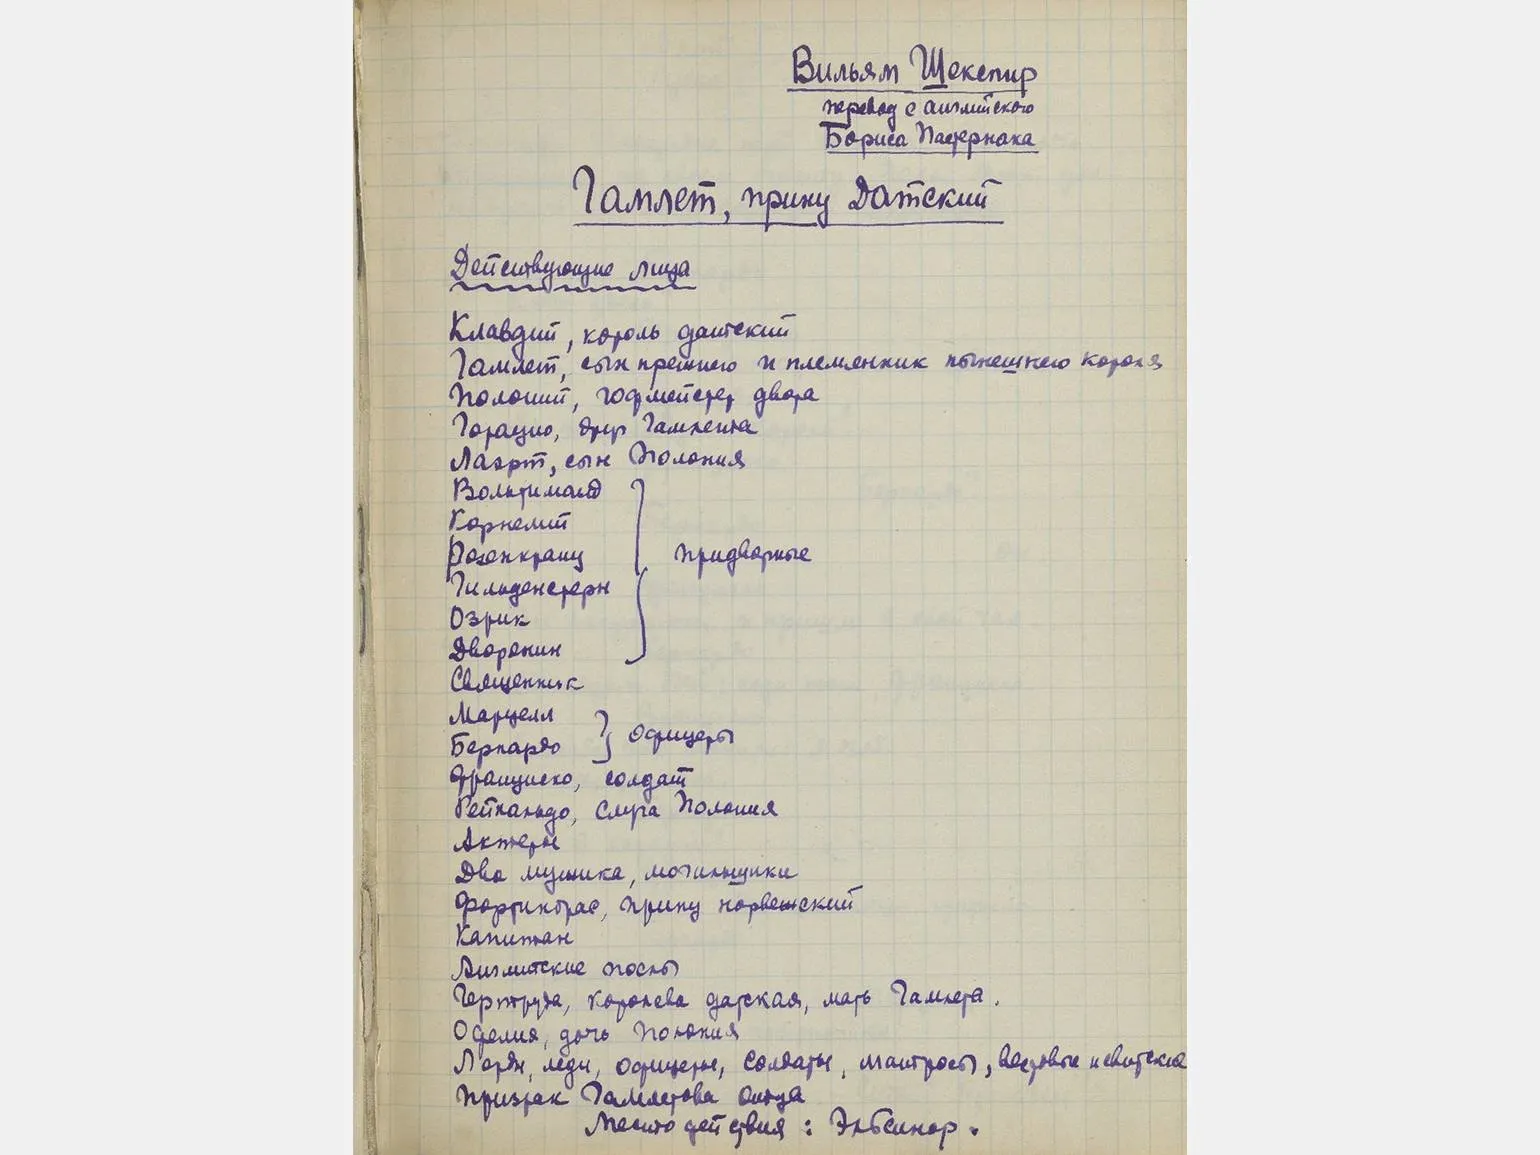 Вильям Шекспир
перевод с английского
Бориса Пастернака
Гамлет, принц Датский
Действующие лица
Клавдий, король датский
Гамлет, сын прежнего и племянник нынешнего короля
Полоний, гофмейстер двора
Горацио, друг Гамлета
Лаэрт, сын Полония
Вольтиманд
Корнелий
Розенкранц
придворные
Гильденстерн
Озрик
Дворянин
Священник
Марцелл
Бернардо
офицеры
Франциско, солдат
Рейнальдо, слуга Полония
Актеры
Два мужика, могильщики
Фортинбрас, принц норвежский
Капитан
Английские послы
Гертруда, королева датская, мать Гамлета.
Офелия, дочь Полония
Лорды, леди, офицеры, солдаты, матросы, вестовые и свитские
Призрак Гамлетова отца
Место действия: Эльсинор.